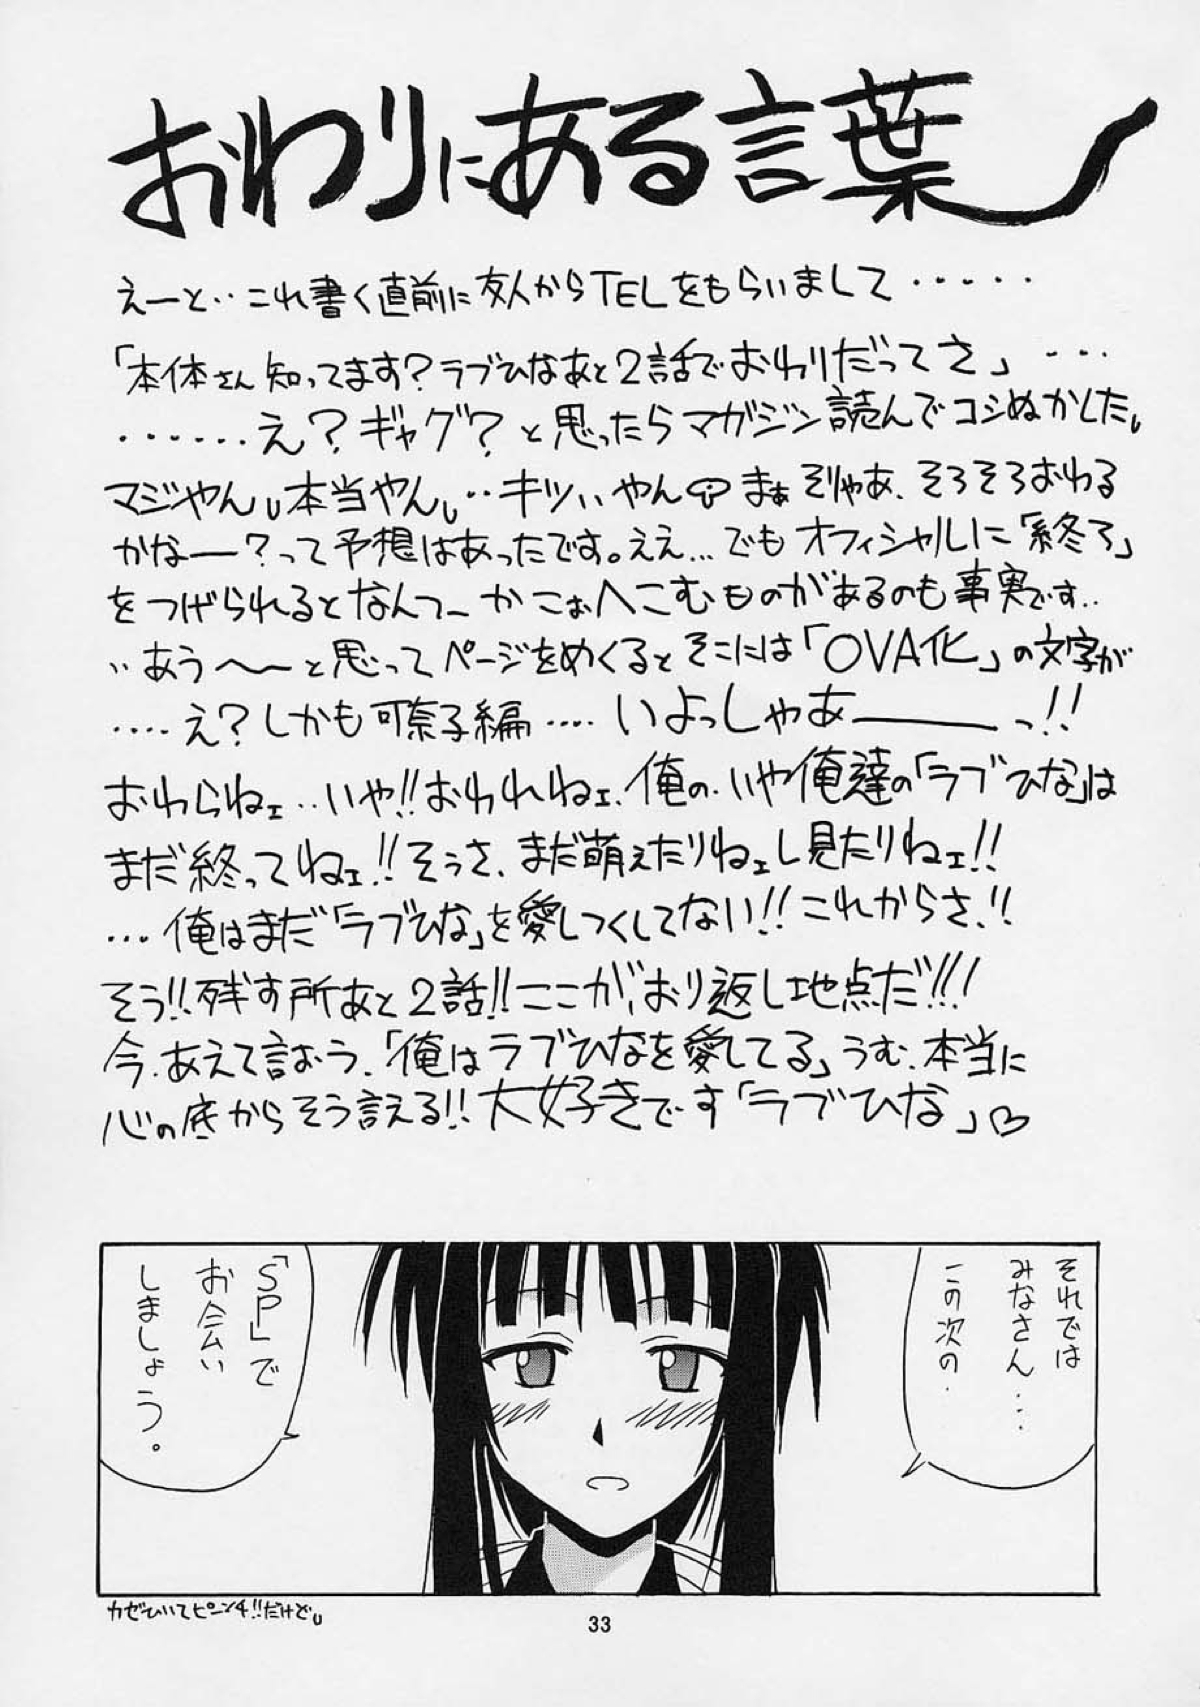 おわりにある言葉
えーと‥これ書く直前に友人からTELをもらいまして・・・・・
「本体さん知ってます?ラブひなあと2話でおわりだってさ」・・・・
・・・・・・え?ギャグ?と思ったらマガジン読んでコシぬかした。
マジやん。本当やん。‥キツいやん まぁそりゃあ、そろそろおわる
かなー?って予想はあったです。ええ…でもオフィシャルに「終了」
をつげられるとなんてーかこぉへこむものがあるのも事実です‥
‥あう〜〜と思ってページをめくるとそこには「OVA化」の文字が
・・・・え?しかも可奈子編・・・・いよっしゃあーーーっ!!
おわらねェ‥いや!!おわれねェ、俺の、いや俺達の「ラブひな」は
まだ終ってねェ!!そうさ、まだ萌えたりねェし見たりねェ!!
…俺はまだ「ラブひな」を愛しつくしてない!!これからさ!!
そう!!残す所あと2話!!ここが、おり返し地点だ!!!
今、あえて言おう、「俺はラブひなを愛してる」うむ、本当に
心の底からそう言える!!大好きです「ラブひな」♡
それでは
みなさん…
この次の
「SP」で
お会い
しましょう。
カゼひいてピーンチ!!だけど。
33